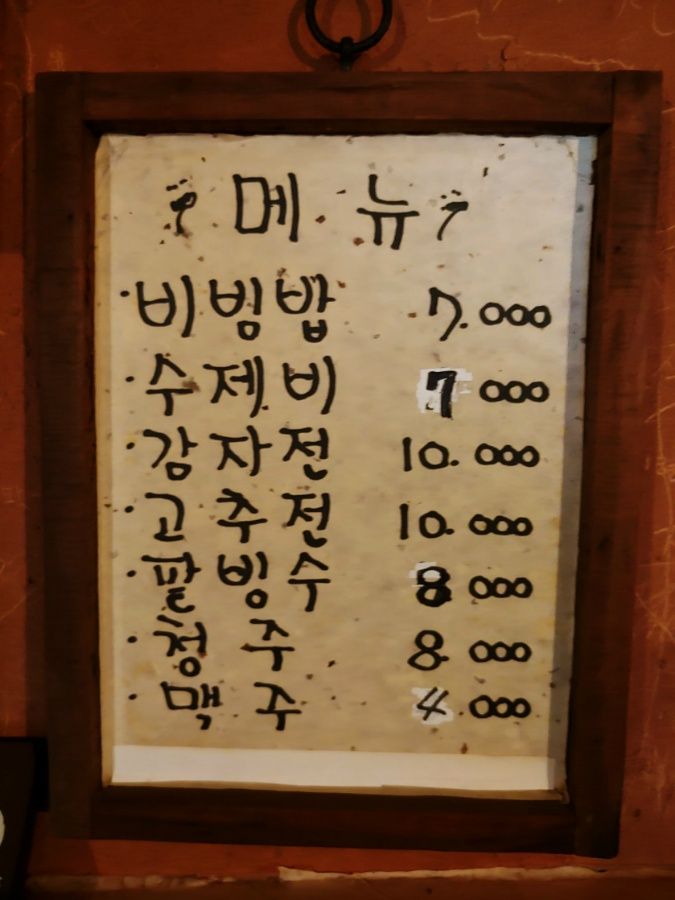 메 뉴
· 비빔밥 7.000
· 수제비 7 000
· 감자전 10.000
· 고추전 10.000
· 팥빙수 8 000
· 청 주 8.000
· 맥 주 4.000